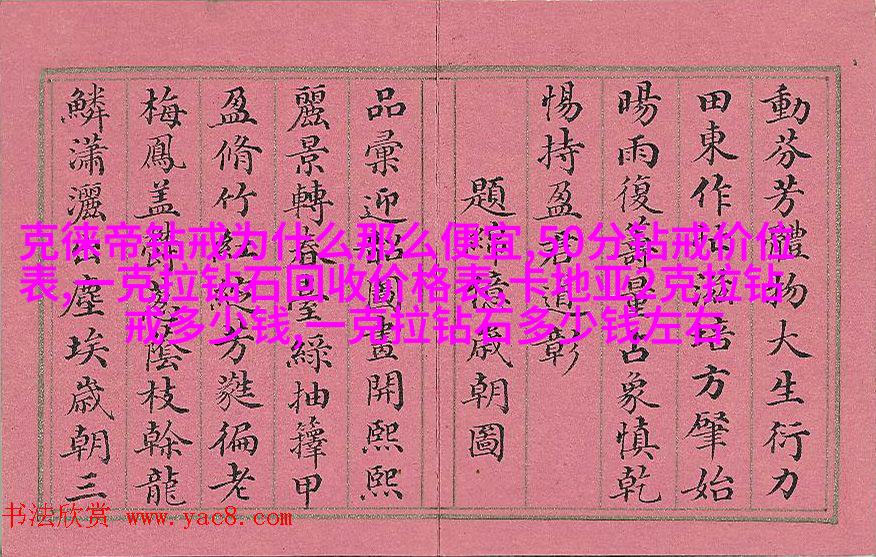 動芬芳體物大生衍力
田東作滋培方肇始
暘雨復量占象慎乾
惕持盈若道彰
題億歲朝圖
品彙迎韶圖畫開熙熙
麗景轉春臺綠抽籜甲
盈脩竹紅綻芳蕤徧老
梅鳳蓋陰枝榦龍
鱗瀟灑出塵埃歲朝三
克徕帝钻戒为什么那么便宜,50分钻戒价位
表,一克拉钻石回收价格表,卡地亚2克拉钻
戒多少钱,一克拉钻石多少钱左右
书法欣赏 www.yac8.com